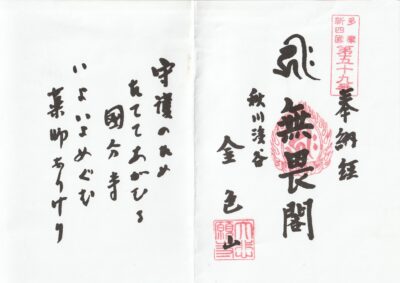 多摩
新四国
第五十九番
奉納経
無畏閣
秋川渓谷
金色山
守護のため
たててあがむる
國分寺
いよいよめぐむ
薬師なりけり